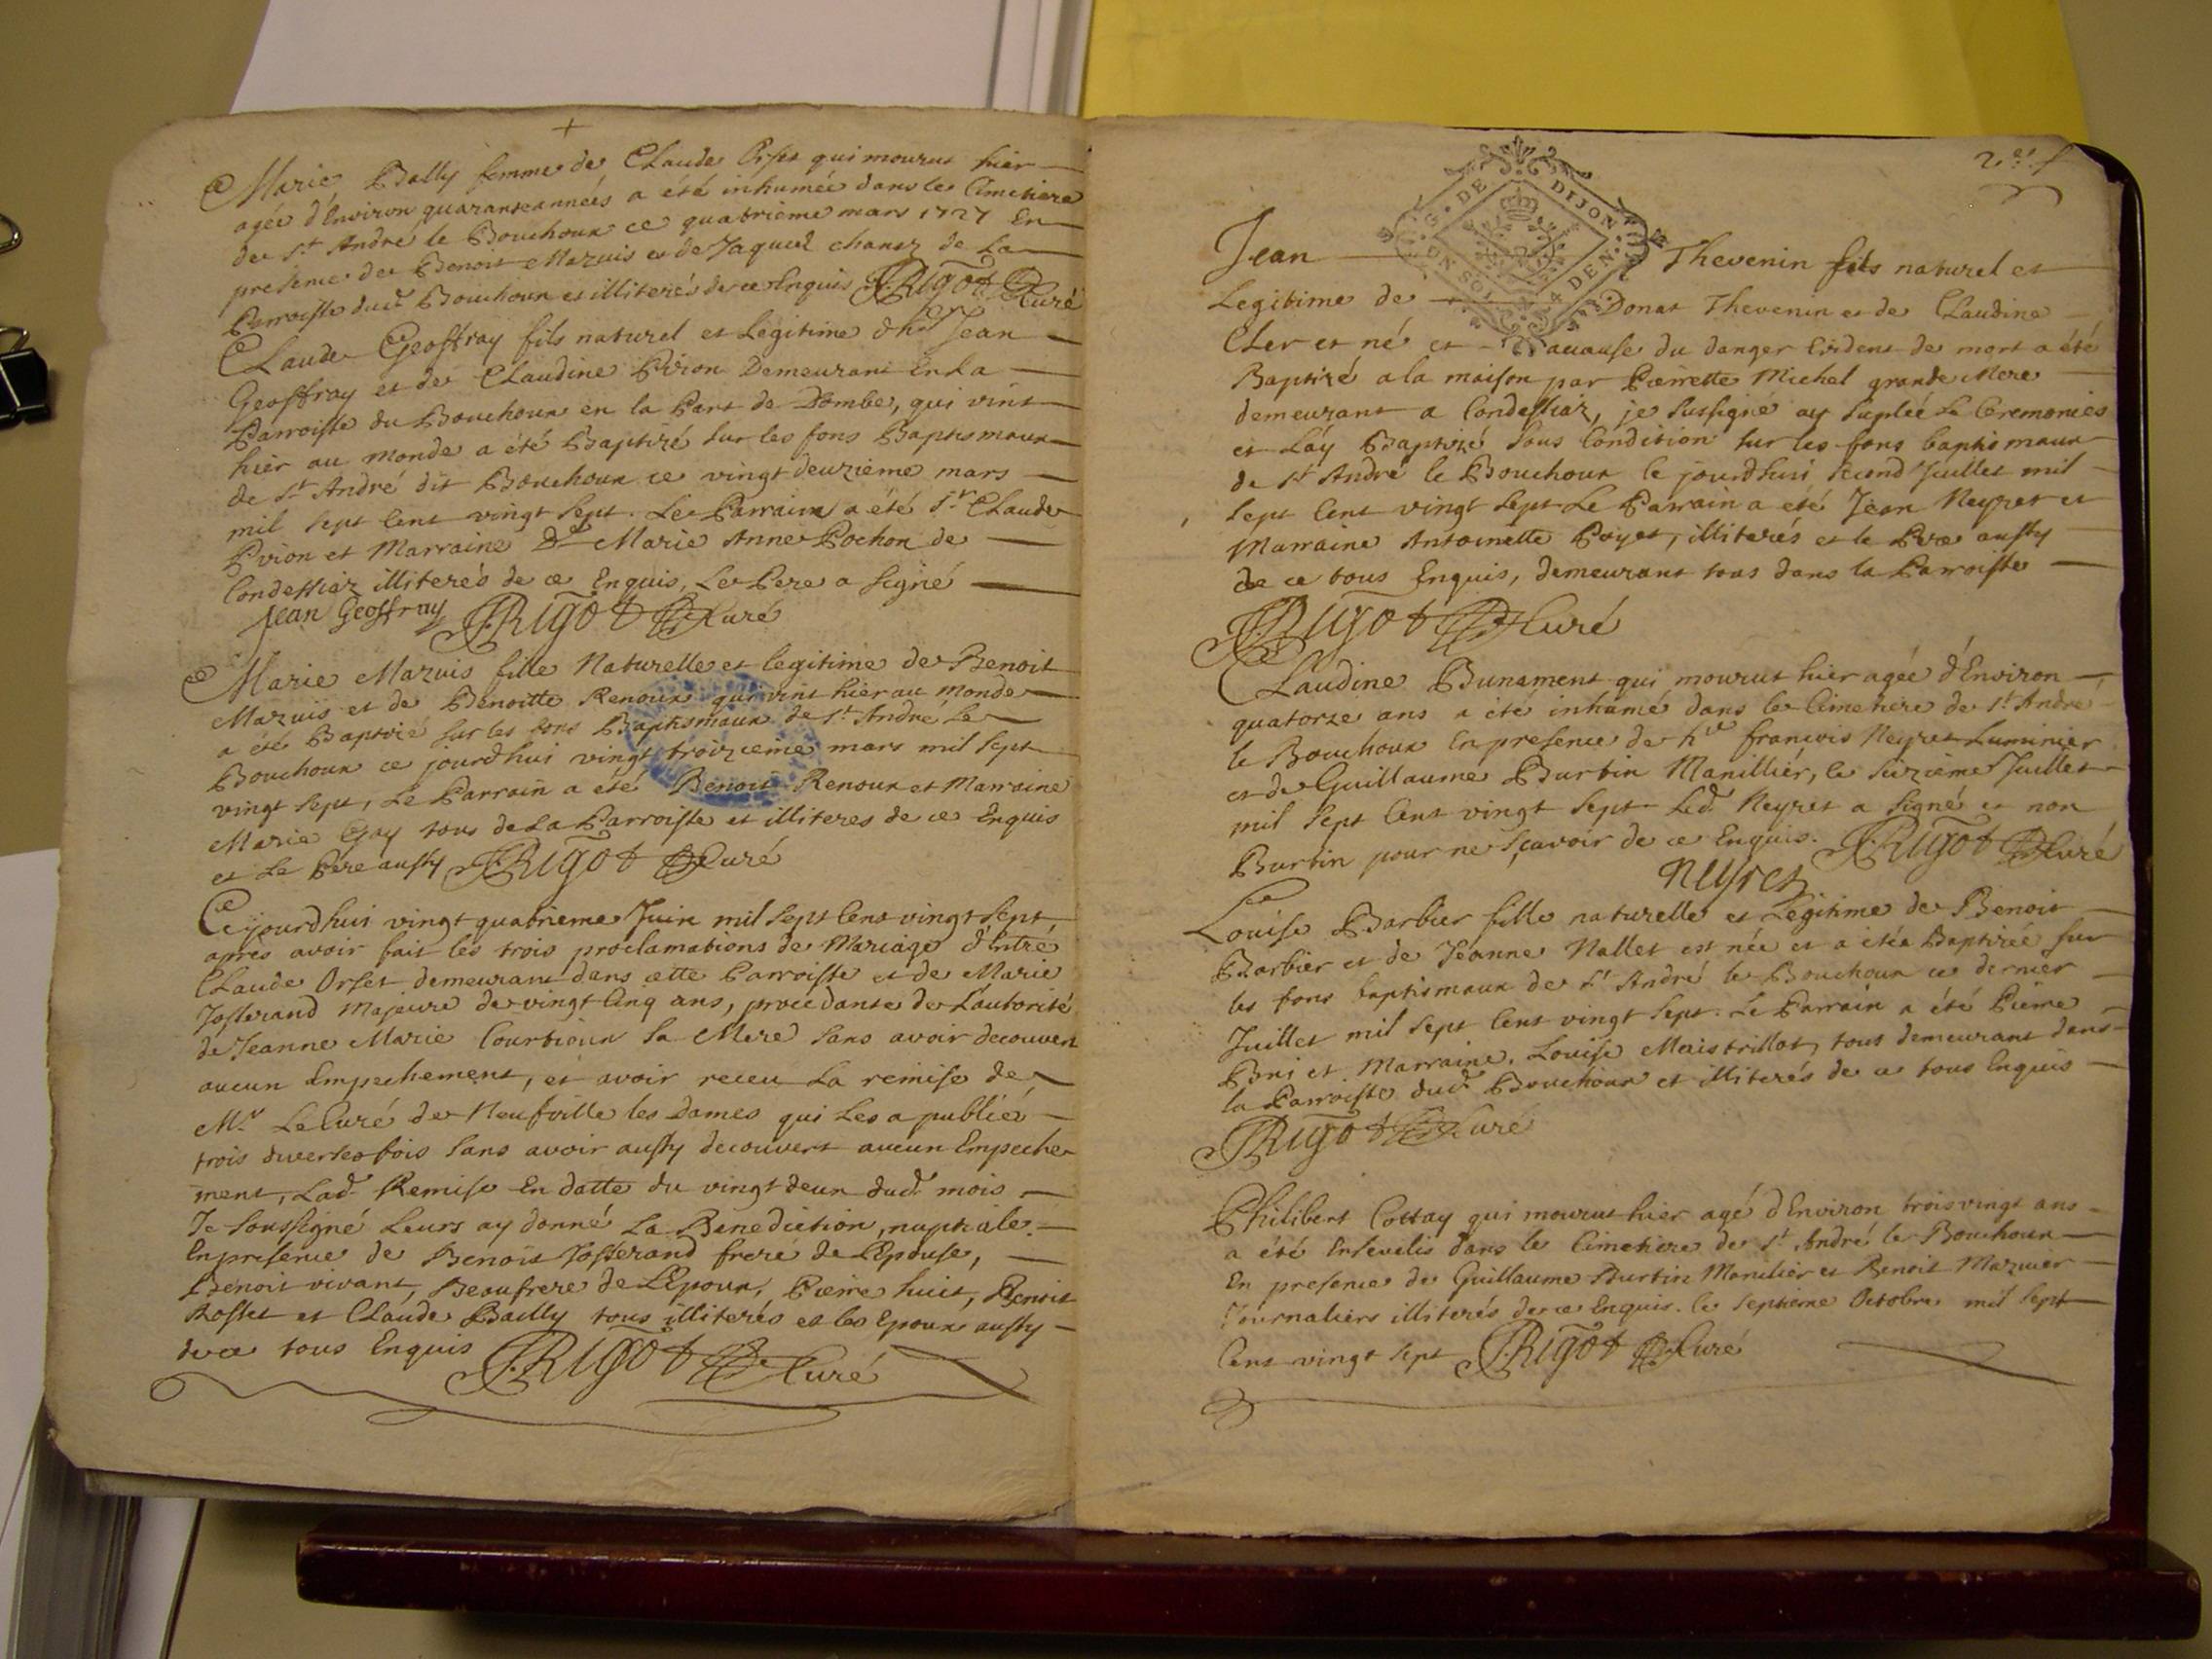 Marie Bally femme de Claude Orset qui mourut hier
agée d'Environ quaranteannées a été inhumée dans le Cimetiere
de St. André le Bouchoux ce quatrieme mars 1727 En
presence de Benoit Mazuis et de Jaques chanez de La
Parroisse dud. Bouchoux et illiterés de ce Enquis J. Rigot Curé
Claude Geoffray fils naturel et Legitime d'ht. Jean
Geoffray et de Claudine Piron Demeurant En La
Parroisse du Bouchoux en la Part de Dombe, qui vint
hier au monde a été Baptizé sur les fons Baptismaux
de St. André dit Bouchoux ce vingt deuzieme mars
mil sept Cent vingt sept. Le Parrain a été Sr. Claude
Pvion et Marraine Dlle Marie Anne Pochon de
Condessiaz illiterés de ce Enquis, Le Pere a signé
Jean Geoffray J. Rigot Curé
Marie Mazuis fille Naturelle et legitime de Benoit
Mazuis et de Benoitte Renoux qui vint hier au monde
a été Baptizé sur les fons Baptismaux de St. André Le
Bouchoux ce jourdhui vingt troizieme mars mil sept
vingt sept, Le Parrain a été Benoit Renoux et Marraine
Marie Gay tous de La Parroisse et illiteres de ce Enquis
et Le Pere aussy J. Rigot Curé
Cejourdhui vingt quatrieme Juin mil sept Cent vingt sept
apres avoir fait les trois proclamations de Mariage d'Entre
Claude Orset demeurant dans cette Parroisse et de Marie
Josserand Majeure de vingt Cinq ans, procedante de L'autorité
de Jeanne Marie Courtioux sa Mere sans avoir decouvert
aucun Empechement, et avoir receu La remise de
Mr. Le Curé de Neufville les Dames qui Les a publiés
trois diverses fois sans avoir aussy decouvert aucun Empeche
ment, Lad. Remise En datte du vingt deux dud. mois
Je soussigné Leurs ay donné La Benediction nuptiale
Enpresence de Benoit Josserand frere de L'Epouse,
Benoit vivant, Beaufrere de L'Epoux, Pierre huit, Benoit
Rosset et Claude Bailly tous illiterés et les Epoux aussy
de ce tous Enquis J. Rigot Curé
2e. f
G. DE DIJON
UN SOL 4 DEN.
Jean Thevenin fils naturel et
Legitime de Donat Thevenin et de Claudine
Cler et né et acause du danger Evident de mort a été
Baptizé a la maison par Pierrette Michel grande Mere
demeurant a Condessiaz, je sussigné ay supleé Le Ceremonies
et L'ay Baptizé sous Condition sur les fons baptismaux
de St. André le Bouchoux le jourdhui second Juillet mil
sept Cent vingt sept Le Parrain a eté Jean Neyret et
Marraine Antoinette Poyet, illiterés et le Pere aussy
de ce tous Enquis, demeurant tous dans la Parroisse
J. Rigot Curé
Claudine Bunement qui mourut hier agée d'Environ
quatorze ans a été inhumé dans le Cimetiere de St. André
le Bouchoux En presence de hte francois Neyret Luminier
et de Guillaume Burtin Manillier, le seizieme Juillet
mil sept Cent vingt sept Led. Neyret a signé et non
Burtin pour ne sçavoir de ce Enquis. J. Rigot Curé
Neyret
Louise Barbier fille naturelle et Legitime de Benoit
Barbier et de Jeanne Nallet est née et a étée Baptizée sur
les fons baptismaux de St. André le Bouchoux ce dernier
Juillet mil sept Cent vingt sept. Le Parrain a été Pierre
Bri et Marraine. Louise Maistrillot tous demeurant dans
la Parroisse dud. Bouchoux et illiterés de ce tous Enquis
J. Rigot Curé
Philibert Cottay qui mourut hier agé d'Environ troisvingt ans
a été Ensevelis dans le Cimetiere de St. André le Bouchoux
En presence de Guillaume Burtin Manilier et Benoit Mazuier
Journaliers illiterés de ce Enquis. le septieme Octobre mil sept
Cent vingt sept J. Rigot Curé